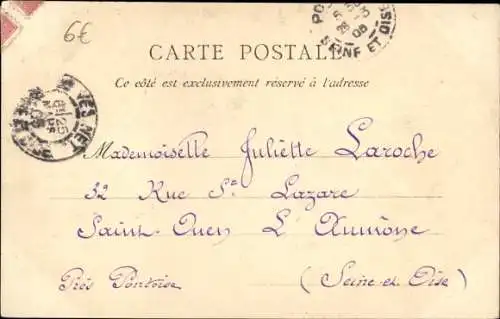 6€
CARTE POSTALE
Ce côté est exclusivement réservé à l'adresse
SEINE ET OISE
Mademoiselle Juliette Laroche
32 Rue St. Lazare
Saint-Ouen L'Aumône
Près Pontoise (Seine et Oise)